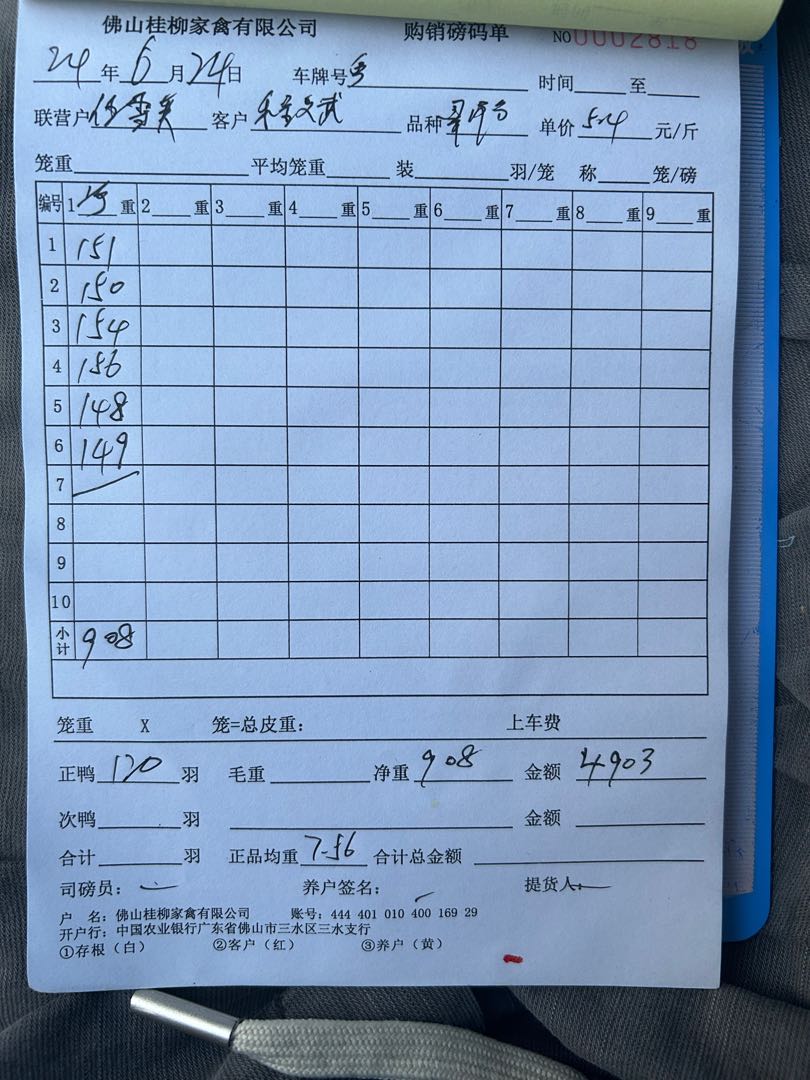 佛山桂柳家禽有限公司 购销磅码单 NO0002818
24年6月24日 车牌号粤 时间 至
联营户 客户 文武 品种 单价5.4元/斤
笼重 平均笼重 装 羽/笼 称 笼/磅
编号 1 重 2 重 3 重 4 重 5 重 6 重 7 重 8 重 9 重
1 151
2 150
3 154
4 156
5 148
6 149
7
8
9
10
小计 908
笼重 X 笼=总皮重: 上车费
正鸭120羽 毛重 净重908 金额4903
次鸭 羽 金额
合计 羽 正品均重7.56 合计总金额
司磅员: 养户签名: 提货人:
户 名: 佛山桂柳家禽有限公司 账号: 444 401 010 400 169 29
开户行: 中国农业银行广东省佛山市三水区三水支行
①存根(白) ②客户(红) ③养户(黄)